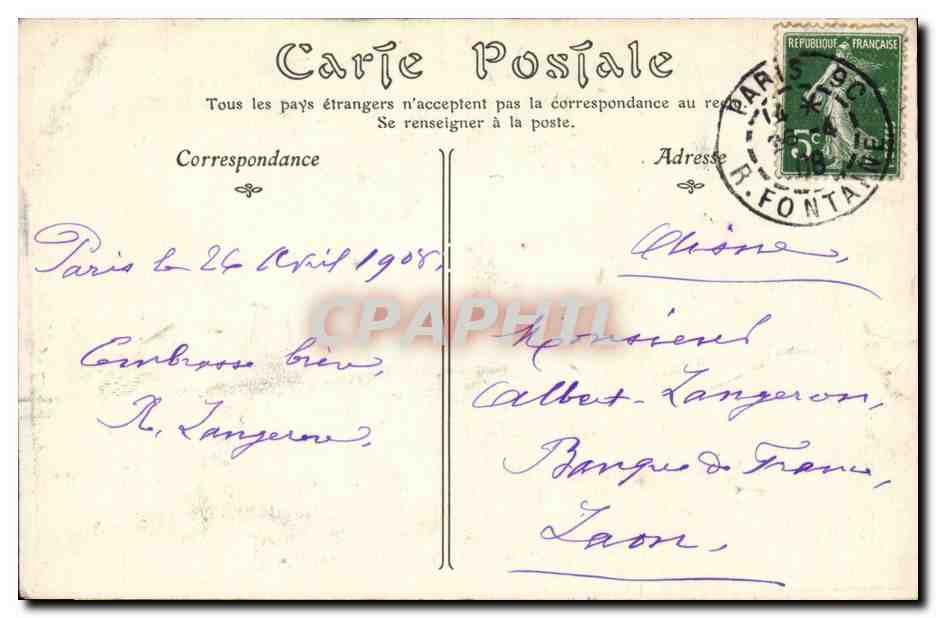 Carte Postale
Tous les pays étrangers n'acceptent pas la correspondance au rec
Se renseigner à la poste.
Correspondance
Adresse
RÉPUBLIQUE FRANÇAISE
5c
PARIS 9C
R. FONTAINE
08
Paris le 26 Avril 1908,
Embrasse bien,
R. Langeron,
Aisne,
Monsieur
Albert Langeron,
Banque de France,
Laon,
CPAPHIL